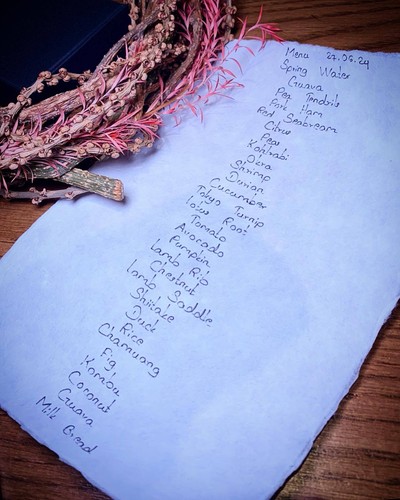 Menu 22.06.24
Spring Water
Guava
Pea Tendrils
Pork Ham
Red Seabream
Citrus
Peas
Kohlrabi
Okra
Shrimp
Durian
Cucumber
Tokyo Turnip
Lotus Root
Tomato
Avocado
Pumpkin
Lamb Rib
Chestnut
Lamb Saddle
Shiitake
Duck
Rice
Chamuang
Fig
Kombu
Coconut
Guava
Milk Bread